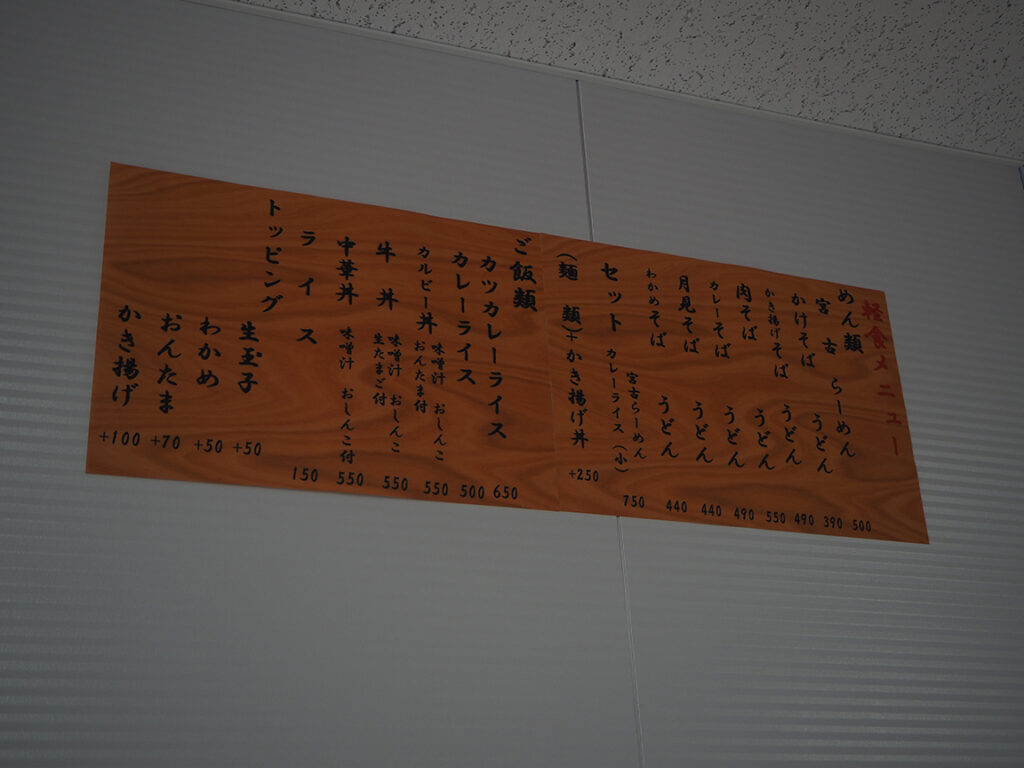 軽食メニュー
めん類
宮古 らーめん 500
かけそば うどん 390
かき揚げそば うどん 490
肉そば うどん 550
カレーそば うどん 490
月見そば うどん 440
わかめそば うどん 440
セット 宮古らーめん
カレーライス（小） 750
（麺類）+かき揚げ丼 +250
ご飯類
カツカレーライス 650
カレーライス 500
カルビー丼 味噌汁 おしんこ
おんたま付 550
牛丼 味噌汁 おしんこ
生たまご付 550
中華丼 味噌汁 おしんこ付 550
ライス 150
トッピング
生玉子 +50
わかめ +50
おんたま +70
かき揚げ +100